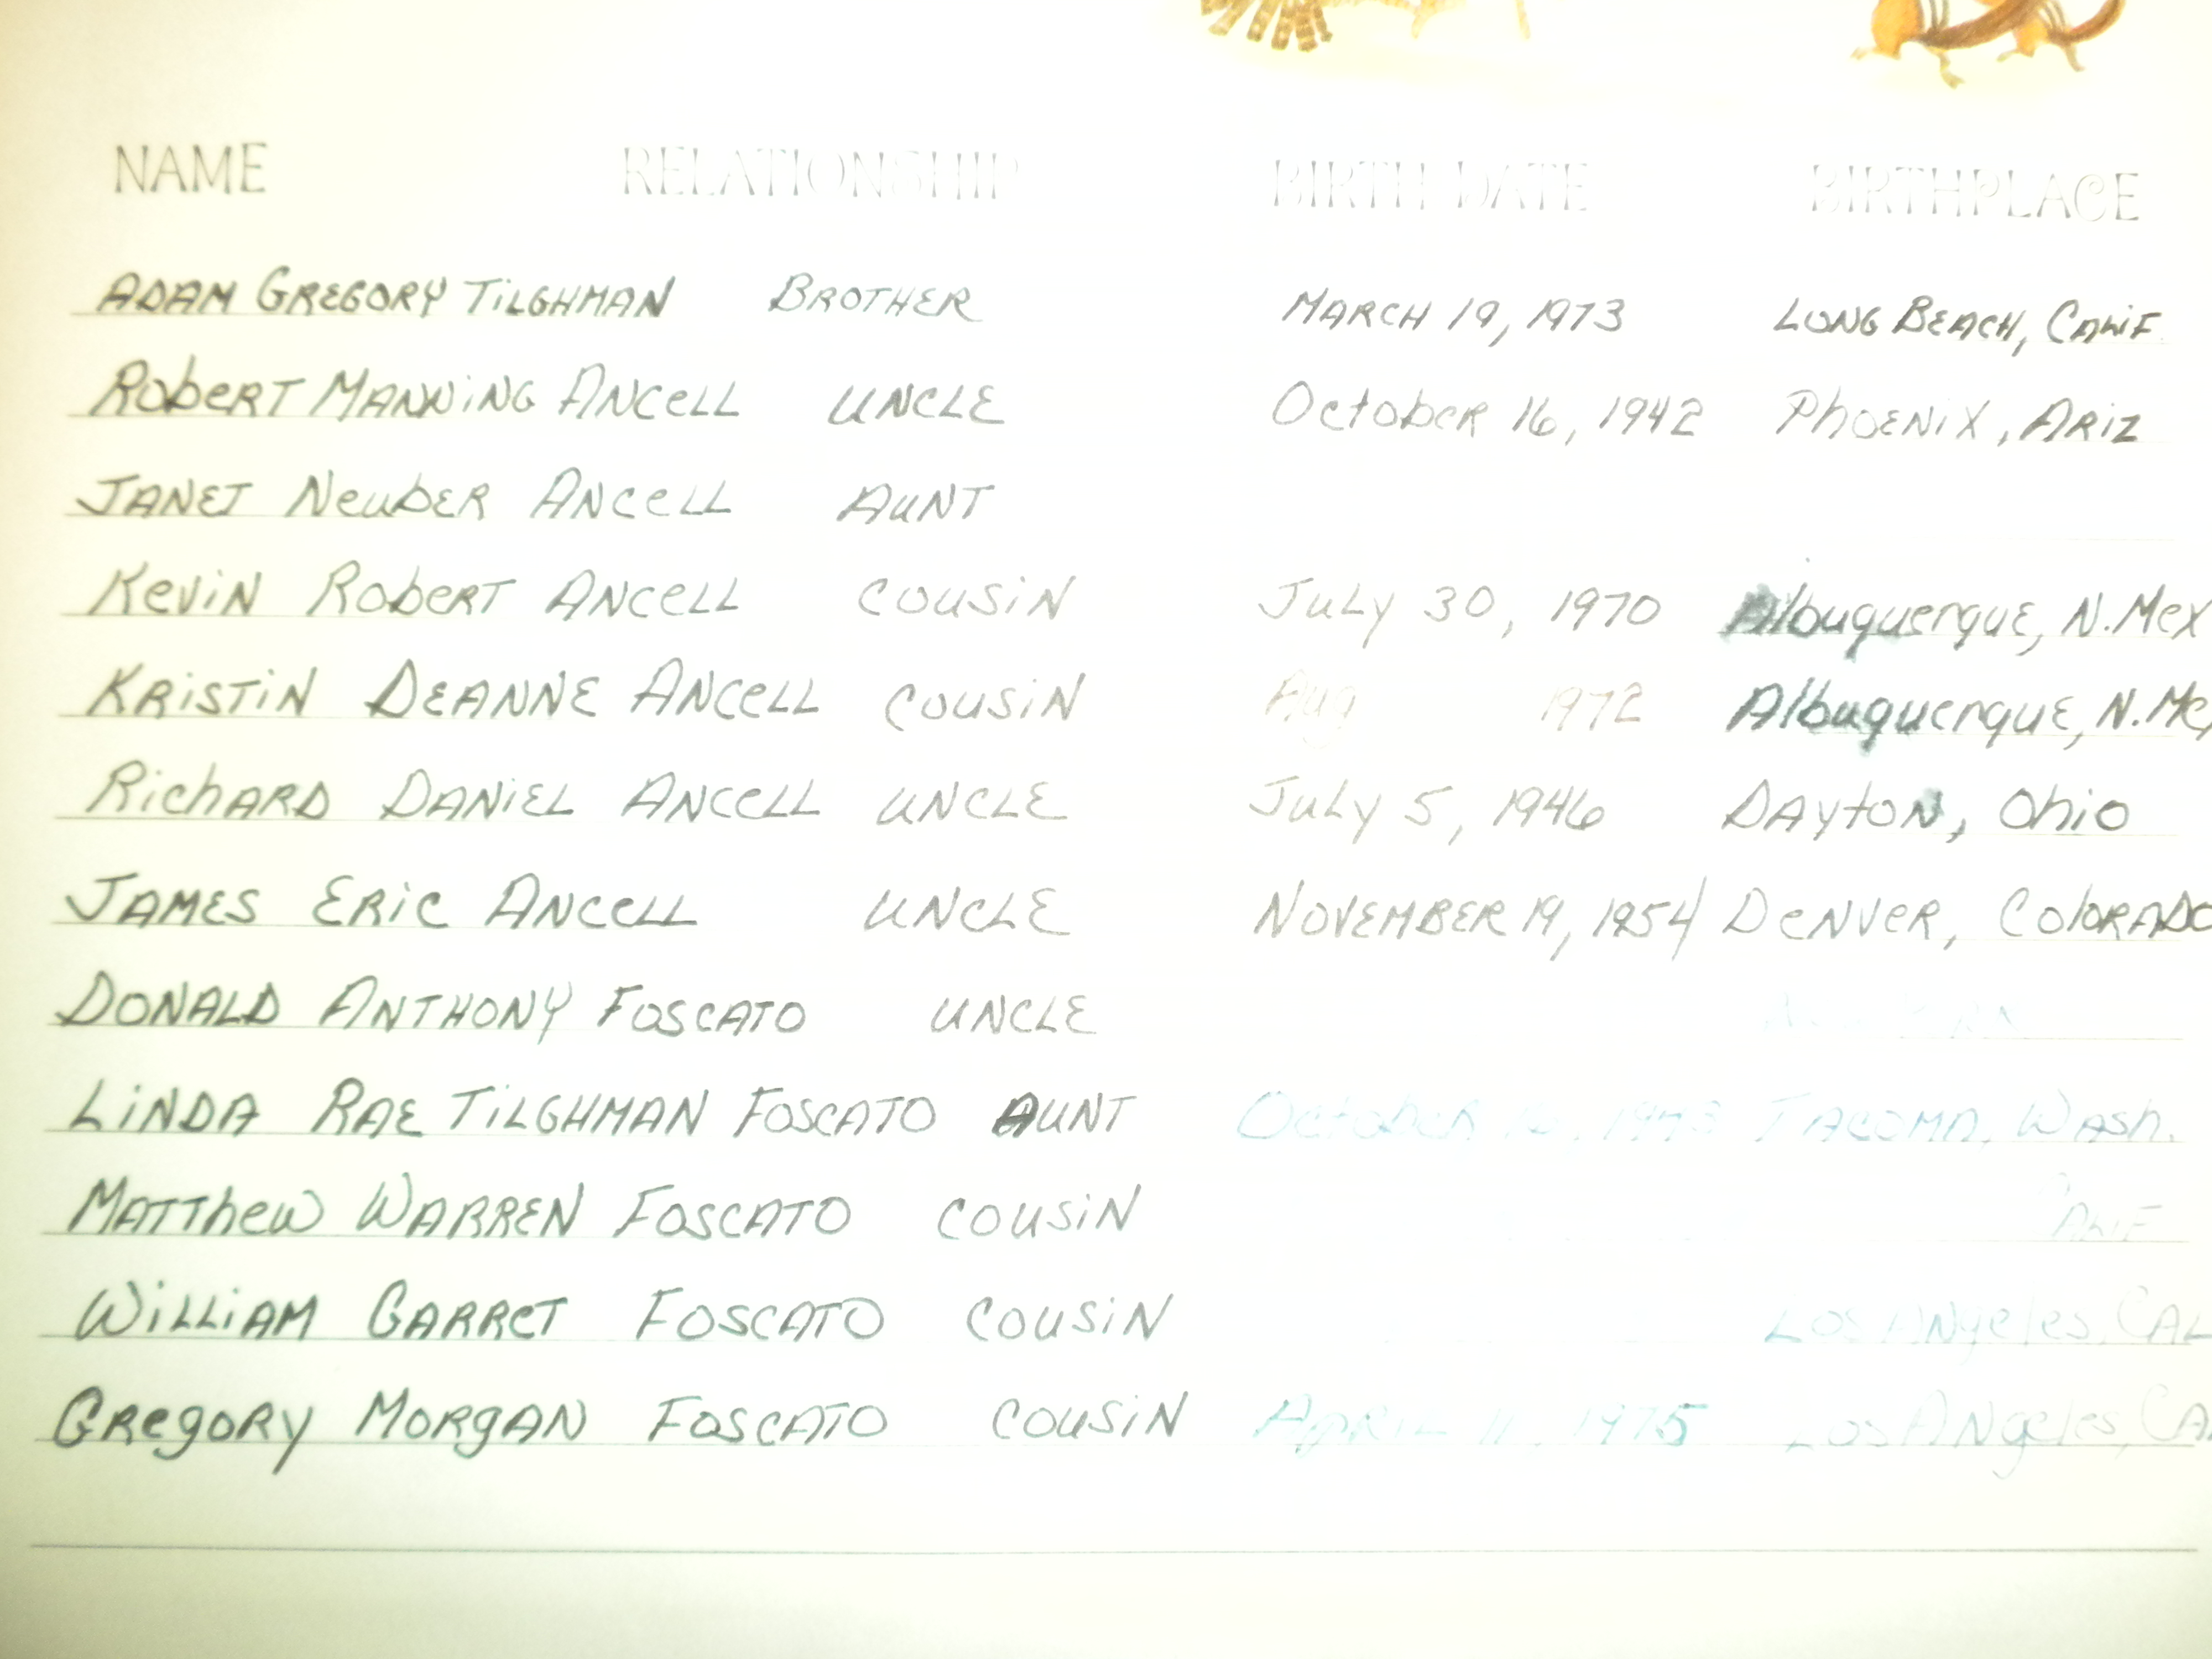 NAME RELATIONSHIP BIRTH DATE BIRTHPLACE
ADAM GREGORY TILGHMAN BROTHER MARCH 19, 1973 LONG BEACH, CALIF.
ROBERT MANNING ANCELL UNCLE October 16, 1942 PHOENIX, ARIZ
JANET NEUBER ANCELL AUNT
KEVIN ROBERT ANCELL COUSIN July 30, 1970 Albuquerque, N.Mex
KRISTIN DEANNE ANCELL COUSIN Aug 1972 Albuquerque, N.Me
RICHARD DANIEL ANCELL UNCLE July 5, 1946 DAYTON, Ohio
JAMES ERIC ANCELL UNCLE NOVEMBER 19, 1954 DENVER, COLORADO
DONALD ANTHONY FOSCATO UNCLE
LINDA RAE TILGHMAN FOSCATO AUNT October TACOMA, Wash.
MATTHEW WARREN FOSCATO COUSIN
WILLIAM GARRET FOSCATO COUSIN Los ANgeles, CAL
GREGORY MORGAN FOSCATO COUSIN APRIL 11, 1975 Los ANgeles, CA